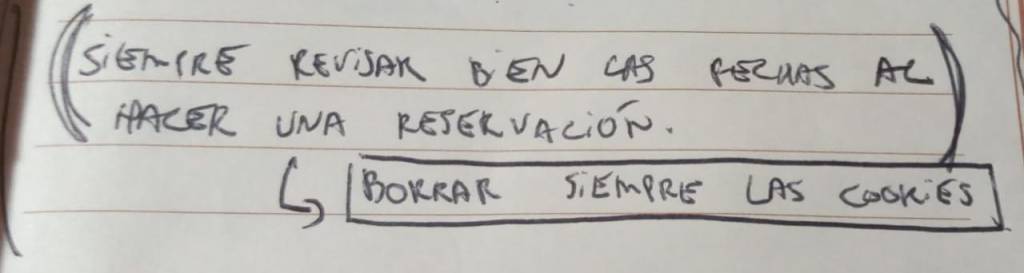 (SIEMPRE REVISAR BIEN LAS FECHAS AL
HACER UNA RESERVACIÓN.)
↳ BORRAR SIEMPRE LAS COOKIES